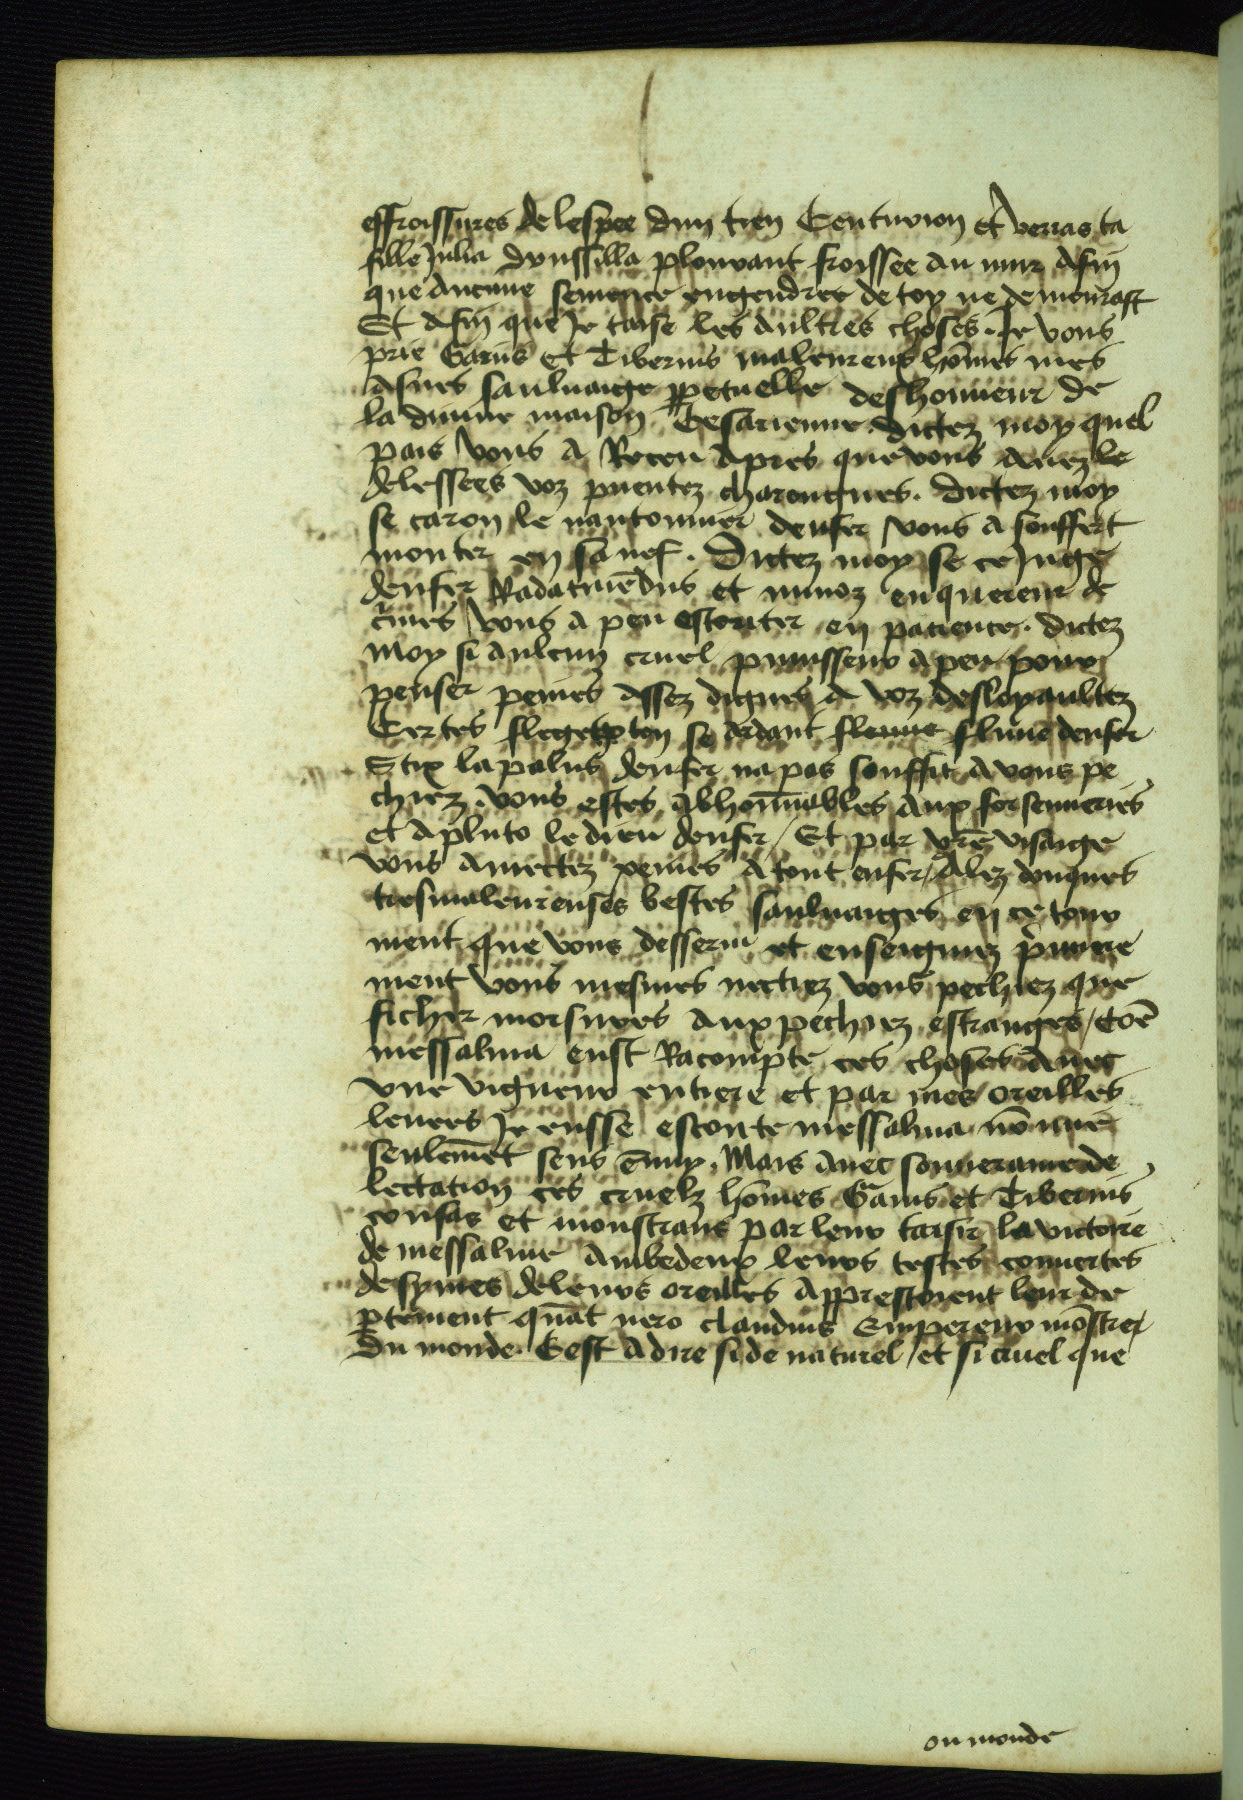 effroissures de lespee dun tien Centurion et verras ta
fille Julia Drussilla plourant froissee au mur Afin
que aucune semence engendree de toy ne demourast
Et Afin que Je taise les aultres choses. Je vous
prie Gayus et Tiberius maleureus hom̄es mes
saulvaige ppetuelle deshonneur de
la divine maison Cesarienne dictez moy quel
pais vous a Receu Apres que vous avez le
delessees voz puentez charongnes. Dictez moy
se caron le nautonnier denfer vous a souffert
monter en sa nef. Dictez moy se ce Juge
denfer Radamēdus et minoz enquereur de
vous a peu escouter en patience. dictez
Moy si aulcun cruel punisseur a peu pour
penser peines assez dignes a voz desloyaultez
Certes flegethton se ardant fleuve denfer
Stix la palus denfer na pas souffit a vous pe
chiez. vous estes abhominables aux forseneries
et a pluto le dieu denfer / Et par vr̄e visaige
vous amectez peines a tout enfer / Alez donques
tresmaleureuses bestes saulvaiges en ce tour
ment que vous desservi et enseignez p̄miere
ment vous mesmes nectiez vous pechiez que
ficher morsures aux pechiez estranges / Cōe
messalina eust Racompte ces choses avec
une vigueur entiere et par mes oreilles
levees Je eusse escoute messalina nō mie
seulemēt sens ēnuy. Mais avec souveraine de
lectation ces cruelz hom̄es Gaius et Tiberius
confus et monstrans par leur taisir la victoire
de messaline Ambedeux leurs testes couvertes
desynes de leurs oreilles Apprestoient leur de
ptement quāt nero claudius Empereur mōstre /
Du monde. Cest a dire si de naturel / et si cruel que
on monde